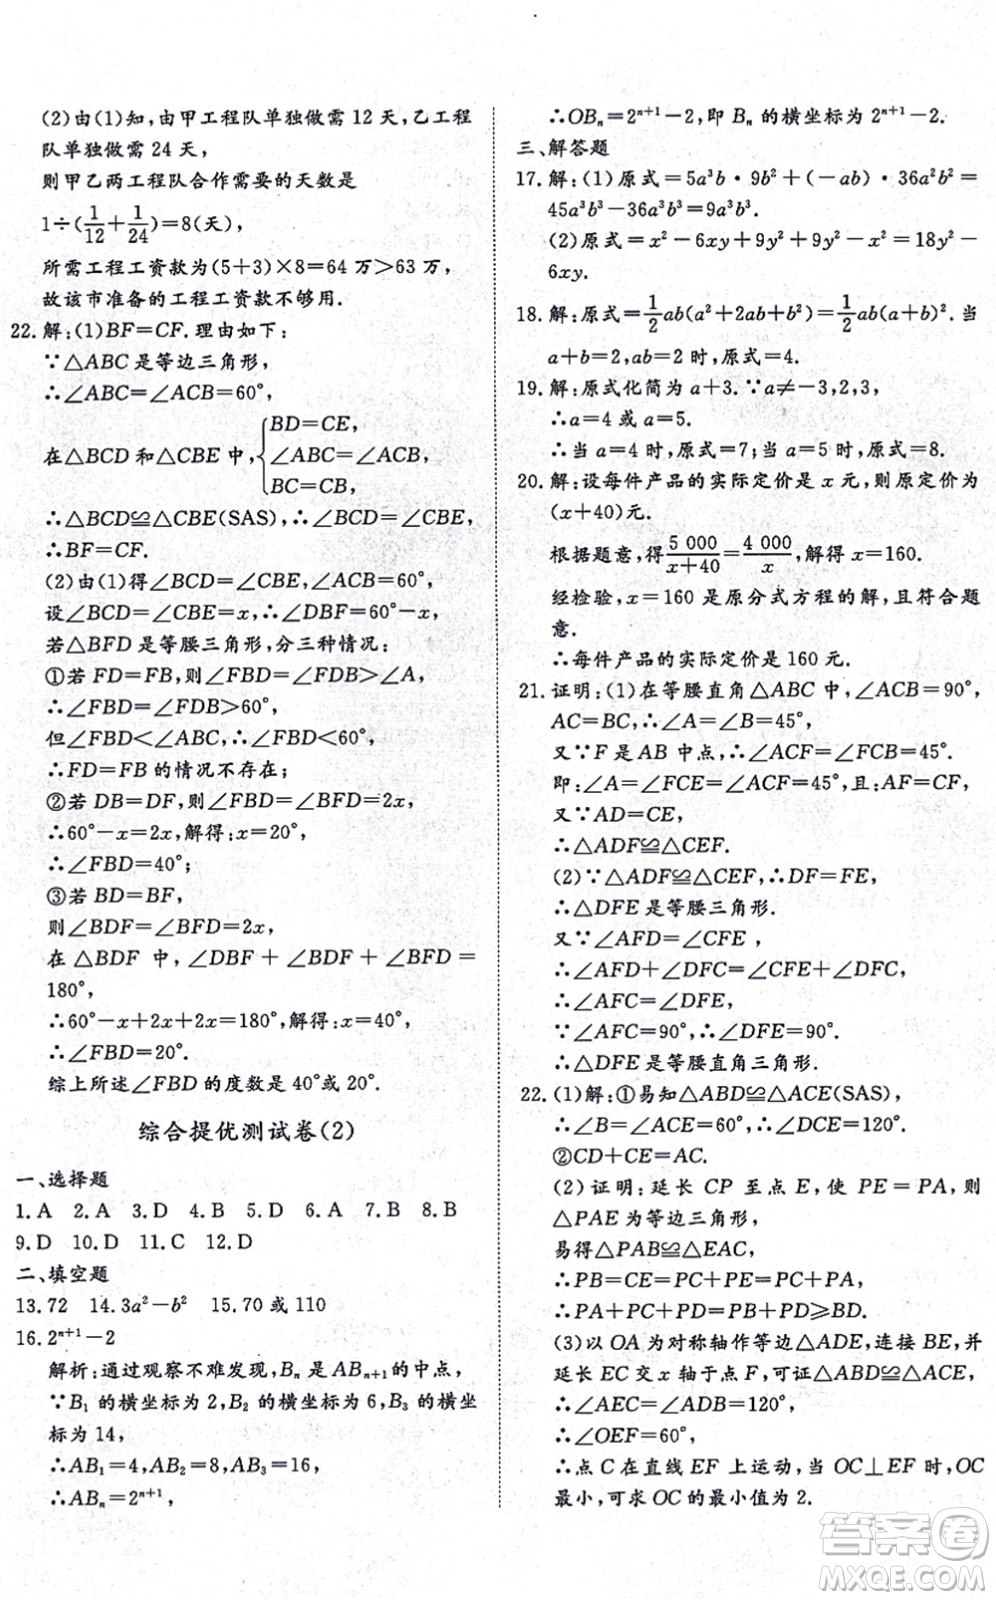 (2)由(1)知,由甲工程队单独做需 12 天,乙工程
队单独做需 24 天,
则甲乙两工程队合作需要的天数是
1÷(1/12+1/24)=8(天),
所需工程工资款为(5+3)×8=64 万>63 万,
故该市准备的工程工资款不够用.
22. 解:(1)BF=CF. 理由如下:
∵△ABC 是等边三角形,
∴∠ABC=∠ACB=60°,
在△BCD 和△CBE 中,{BD=CE,
∠ABC=∠ACB,
BC=CB,
∴△BCD≌△CBE(SAS),∴∠BCD=∠CBE,
∴BF=CF.
(2)由(1)得∠BCD=∠CBE,∠ACB=60°,
设∠BCD=∠CBE=x,∴∠DBF=60°-x,
若△BFD 是等腰三角形,分三种情况:
①若 FD=FB,则∠FBD=∠FDB>∠A,
∴∠FBD=∠FDB>60°,
但∠FBD<∠ABC,∴∠FBD<60°,
∴FD=FB 的情况不存在;
②若 DB=DF,则∠FBD=∠BFD=2x,
∴60°-x=2x,解得:x=20°,
∴∠FBD=40°;
③若 BD=BF,
则∠BDF=∠BFD=2x,
在 △BDF 中,∠DBF+∠BDF+∠BFD=
180°,
∴60°-x+2x+2x=180°,解得:x=40°,
∴∠FBD=20°.
综上所述∠FBD 的度数是 40°或 20°.
综合提优测试卷(2)
一、选择题
1. A 2. A 3. D 4. B 5. D 6. A 7. B 8. B
9. D 10. D 11. C 12. D
二、填空题
13. 72 14. 3a²-b² 15. 70 或 110
16. 2ⁿ⁺¹-2
解析:通过观察不难发现,Bₙ 是 ABₙ₊₁的中点,
∵B₁ 的横坐标为 2,B₂ 的横坐标为 6,B₃ 的横坐
标为 14,
∴AB₁=4,AB₂=8,AB₃=16,
∴ABₙ=2ⁿ⁺¹,
∴OBₙ=2ⁿ⁺¹-2,即 Bₙ 的横坐标为 2ⁿ⁺¹-2.
三、解答题
17. 解:(1)原式=5a³b·9b²+(-ab)·36a²b²=
45a³b³-36a³b³=9a³b³.
(2)原式=x²-6xy+9y²+9y²-x²=18y²-
6xy.
18. 解:原式=1/2ab(a²+2ab+b²)=1/2ab(a+b)². 当
a+b=2,ab=2 时,原式=4.
19. 解:原式化简为 a+3. ∵a≠-3,2,3,
∴a=4 或 a=5.
∴当 a=4 时,原式=7;当 a=5 时,原式=8.
20. 解:设每件产品的实际定价是 x 元,则原定价为
(x+40)元.
根据题意,得5 000/x+40=4 000/x,解得 x=160.
经检验,x=160 是原分式方程的解,且符合题
意.
∴每件产品的实际定价是 160 元.
21. 证明:(1)在等腰直角△ABC 中,∠ACB=90°,
AC=BC,∴∠A=∠B=45°,
又∵F 是 AB 中点,∴∠ACF=∠FCB=45°.
即:∠A=∠FCE=∠ACF=45°,且:AF=CF,
又∵AD=CE,
∴△ADF≌△CEF.
(2)∵△ADF≌△CEF,∴DF=FE,
∴△DFE 是等腰三角形.
又∵∠AFD=∠CFE,
∴∠AFD+∠DFC=∠CFE+∠DFC,
∴∠AFC=∠DFE,
∵∠AFC=90°,∴∠DFE=90°.
∴△DFE 是等腰直角三角形.
22. (1)解:①易知△ABD≌△ACE(SAS),
∴∠B=∠ACE=60°,∴∠DCE=120°.
②CD+CE=AC.
(2)证明:延长 CP 至点 E,使 PE=PA,则
△PAE 为等边三角形,
易得△PAB≌△EAC.
∴PB=CE=PC+PE=PC+PA,
∴PA+PC+PD=PB+PD≥BD.
(3)以 OA 为对称轴作等边△ADE,连接 BE,并
延长 EC 交 x 轴于点 F,可证△ABD≌△ACE,
∴∠AEC=∠ADB=120°,
∴∠OEF=60°,
∴点 C 在直线 EF 上运动,当 OC⊥EF 时,OC
最小,可求 OC 的最小值为 2.
答案圈
MXQE.COM